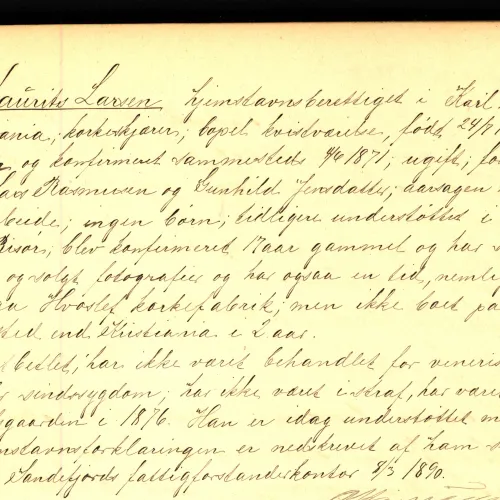 Laurits Larsen hjemstavnsberettiget i Karl
ania, korkeskjærer, bopel Kvistværelse, født 24/7
og konfirmeret sammesteds 1871; ugift; fo
Lars Rasmusen og Gunhild Jensdatter; aarsagen
beide; ingen børn; tidligere understøttet i
Risør; blev konfirmeret 17 aar gammel og har s
og solgt fotografier og har ogsaa en tid, nemli
aa Hvoslef korkefabrik; men ikke boet pa
sted end Kristiania i 2 aar.
betlet; har ikke været behandlet for veneris
sindssygdom; har ikke været i straf, har være
gaarden i 1876. Han er idag understøttet m
mstavnsforklaringen er nedskrevet af ham s
Sandefjords fattigforstanderkontor 8/3 1890.